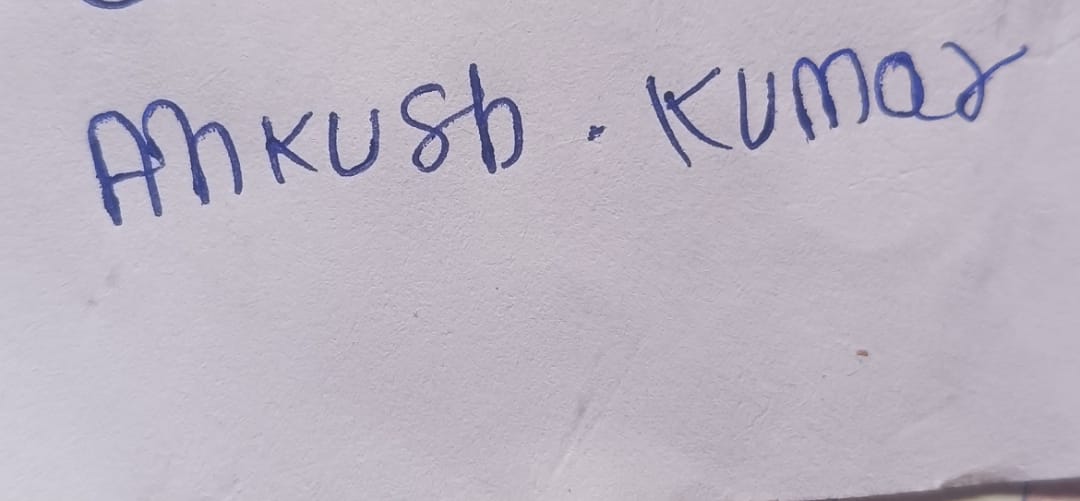 Ankush . Kumar